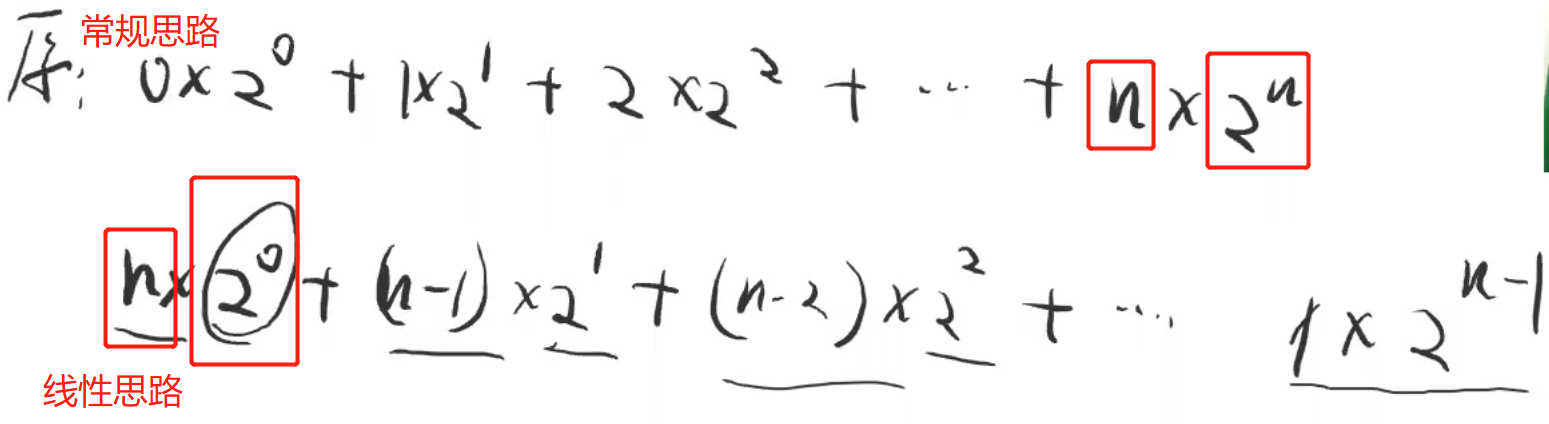 常规思路
原: 0×2⁰ + 1×2¹ + 2×2² + … + n×2ⁿ
n×2⁰ + (n-1)×2¹ + (n-2)×2² + … 1×2ⁿ⁻¹
线性思路